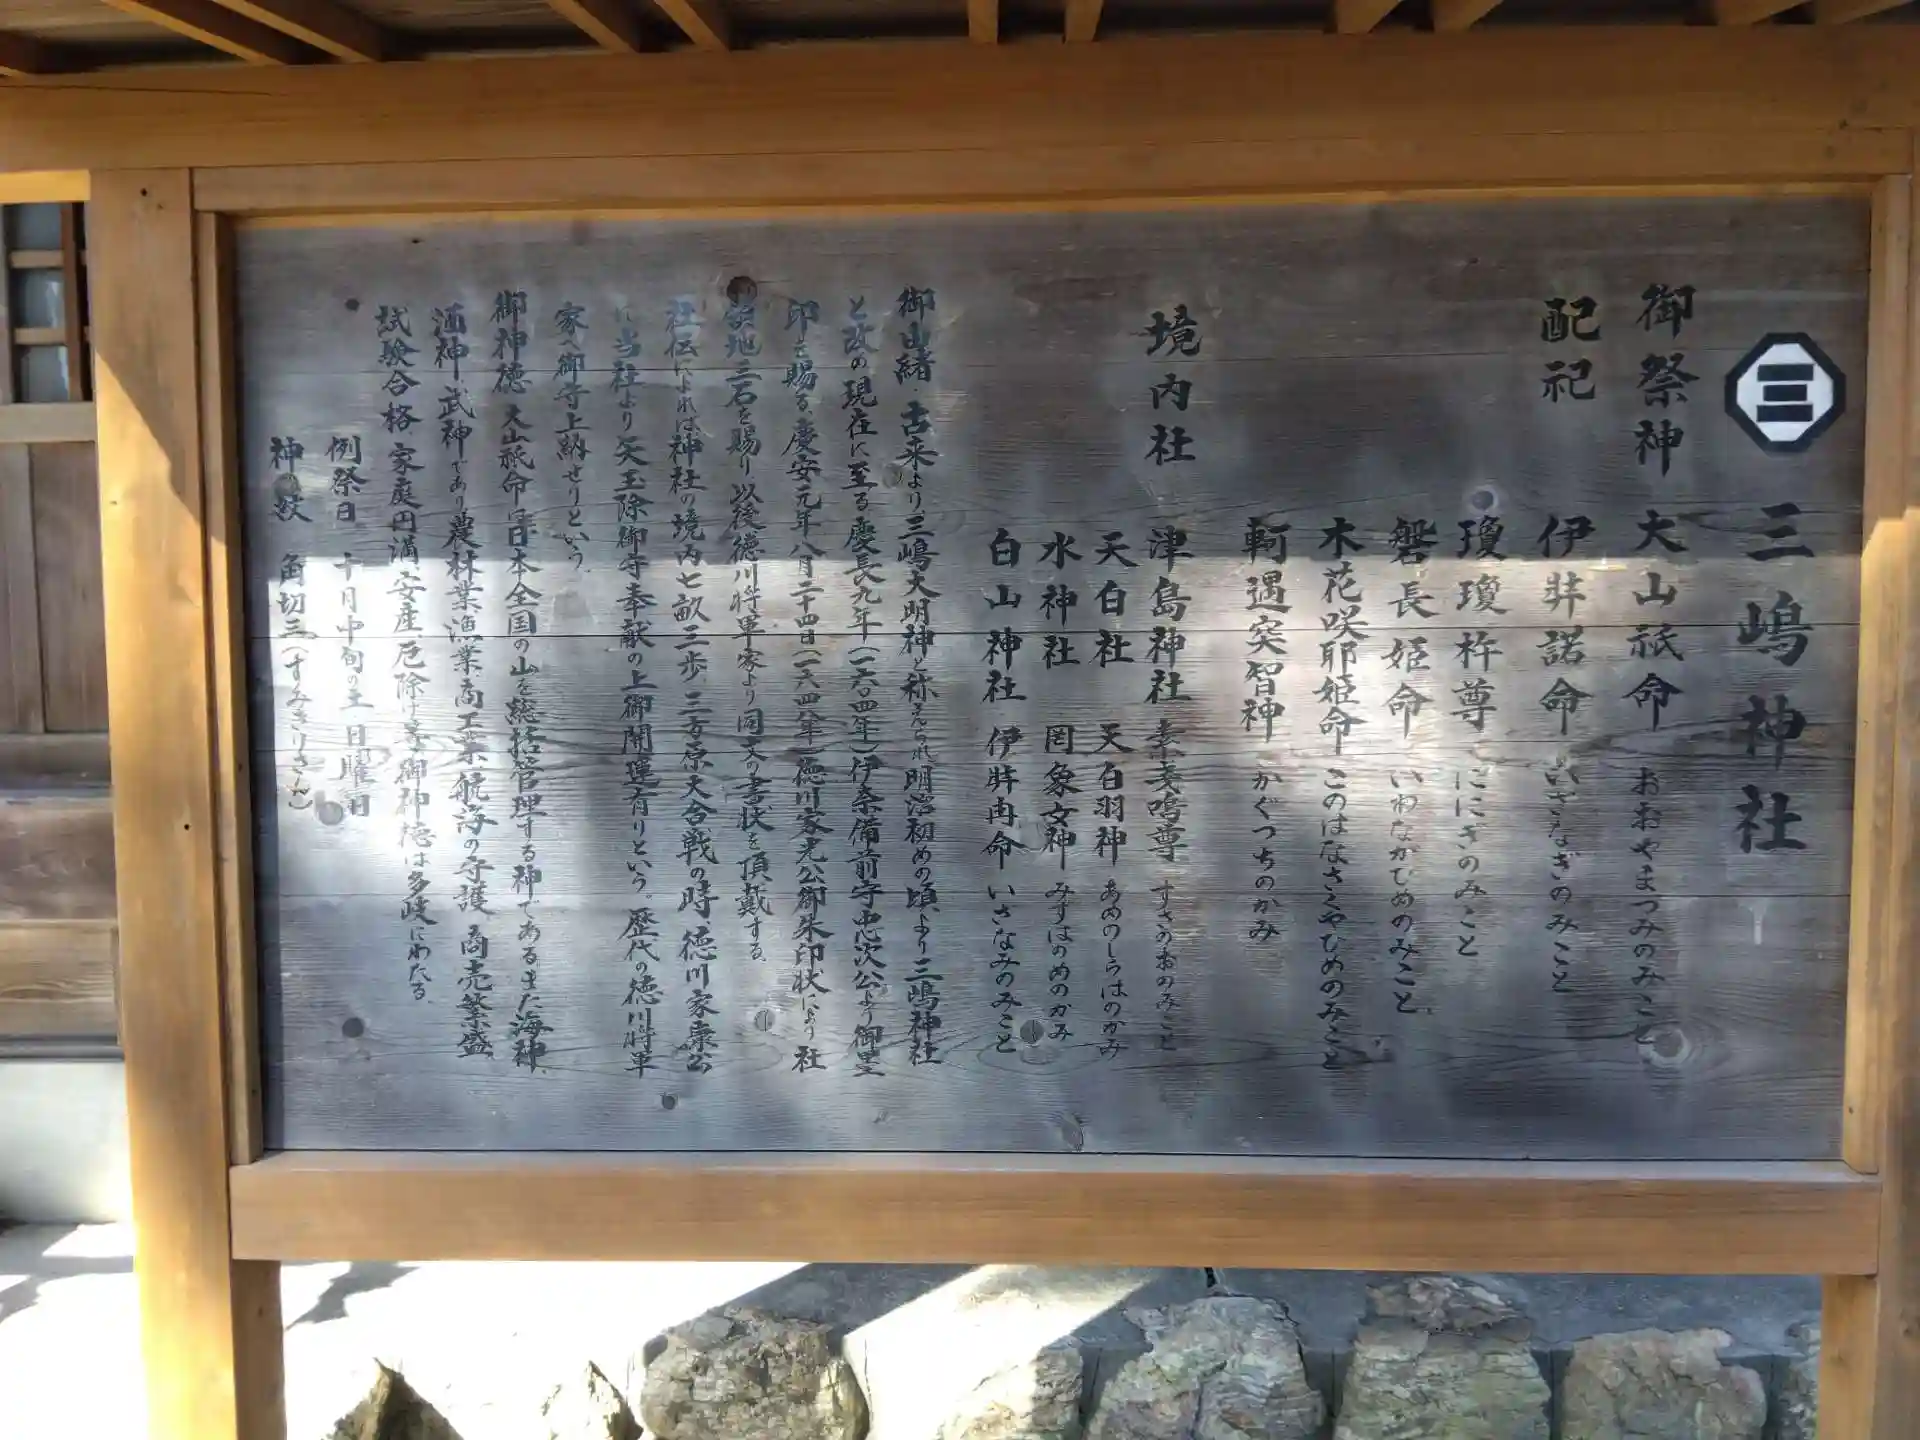 三嶋神社
御祭神 大山祇命 おおやまつみのみこと
配祀 伊弉諾命 いざなぎのみこと
瓊瓊杵尊 ににぎのみこと
磐長姫命 いわながひめのみこと
木花咲耶姫命 このはなさくやひめのみこと
軻遇突智神 かぐつちのかみ
境内社 津島神社 素戔鳴尊 すさのおのみこと
天白社 天白羽神 あめのしらはのかみ
水神社 罔象女神 みずはのめのかみ
白山神社 伊弉冉命 いざなみのみこと
御由緒 古来より、三嶋大明神と称えられ明治初めの頃より三嶋神社
と改め現在に至る 慶長九年(一六〇四年)伊奈備前守忠次公より御黒
印を賜る、慶安元年八月二十四日(一六四八年)徳川家光公御朱印状により社
領地三石を賜り以後徳川将軍家より同文の書状を頂戴する。
社伝によれば神社の境内七畝三歩、三方原大合戦の時、徳川家康公
に当社より矢玉除御守奉献の上御開運有りという。歴代の徳川将軍
家へ御守上納せりという。
御神徳 大山祇命は日本全国の山を総括管理する神であるまた海神、
酒神、武神であり農林業、漁業、商工業、航海の守護 商売繁盛、
試験合格、家庭円満、安産、厄除け等御神徳は多岐にわたる
例祭日 十月中旬の土、日曜日
神の紋 角切三(すみきりさん)